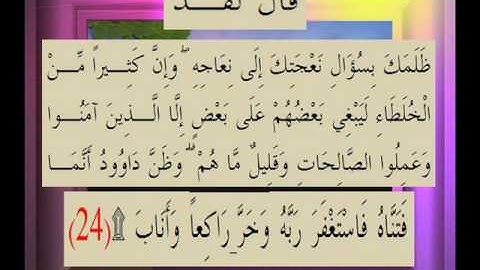 قَالَ لَقَدْ
ظَلَمَكَ بِسُؤَالِ نَعْجَتِكَ إِلَى نِعَاجِهِ ۖ وَإِنَّ كَثِيراً مِّنْ
الْخُلَطَاءِ لَيَبْغِي بَعْضُهُمْ عَلَى بَعْضٍ إِلَّا الَّذِينَ آمَنُوا
وَعَمِلُوا الصَّالِحَاتِ وَقَلِيلٌ مَّا هُمْ ۗ وَظَنَّ دَاوُودُ أَنَّمَا
فَتَنَّاهُ فَاسْتَغْفَرَ رَبَّهُ وَخَرَّ رَاكِعاً وَأَنَابَ ۩ (24)